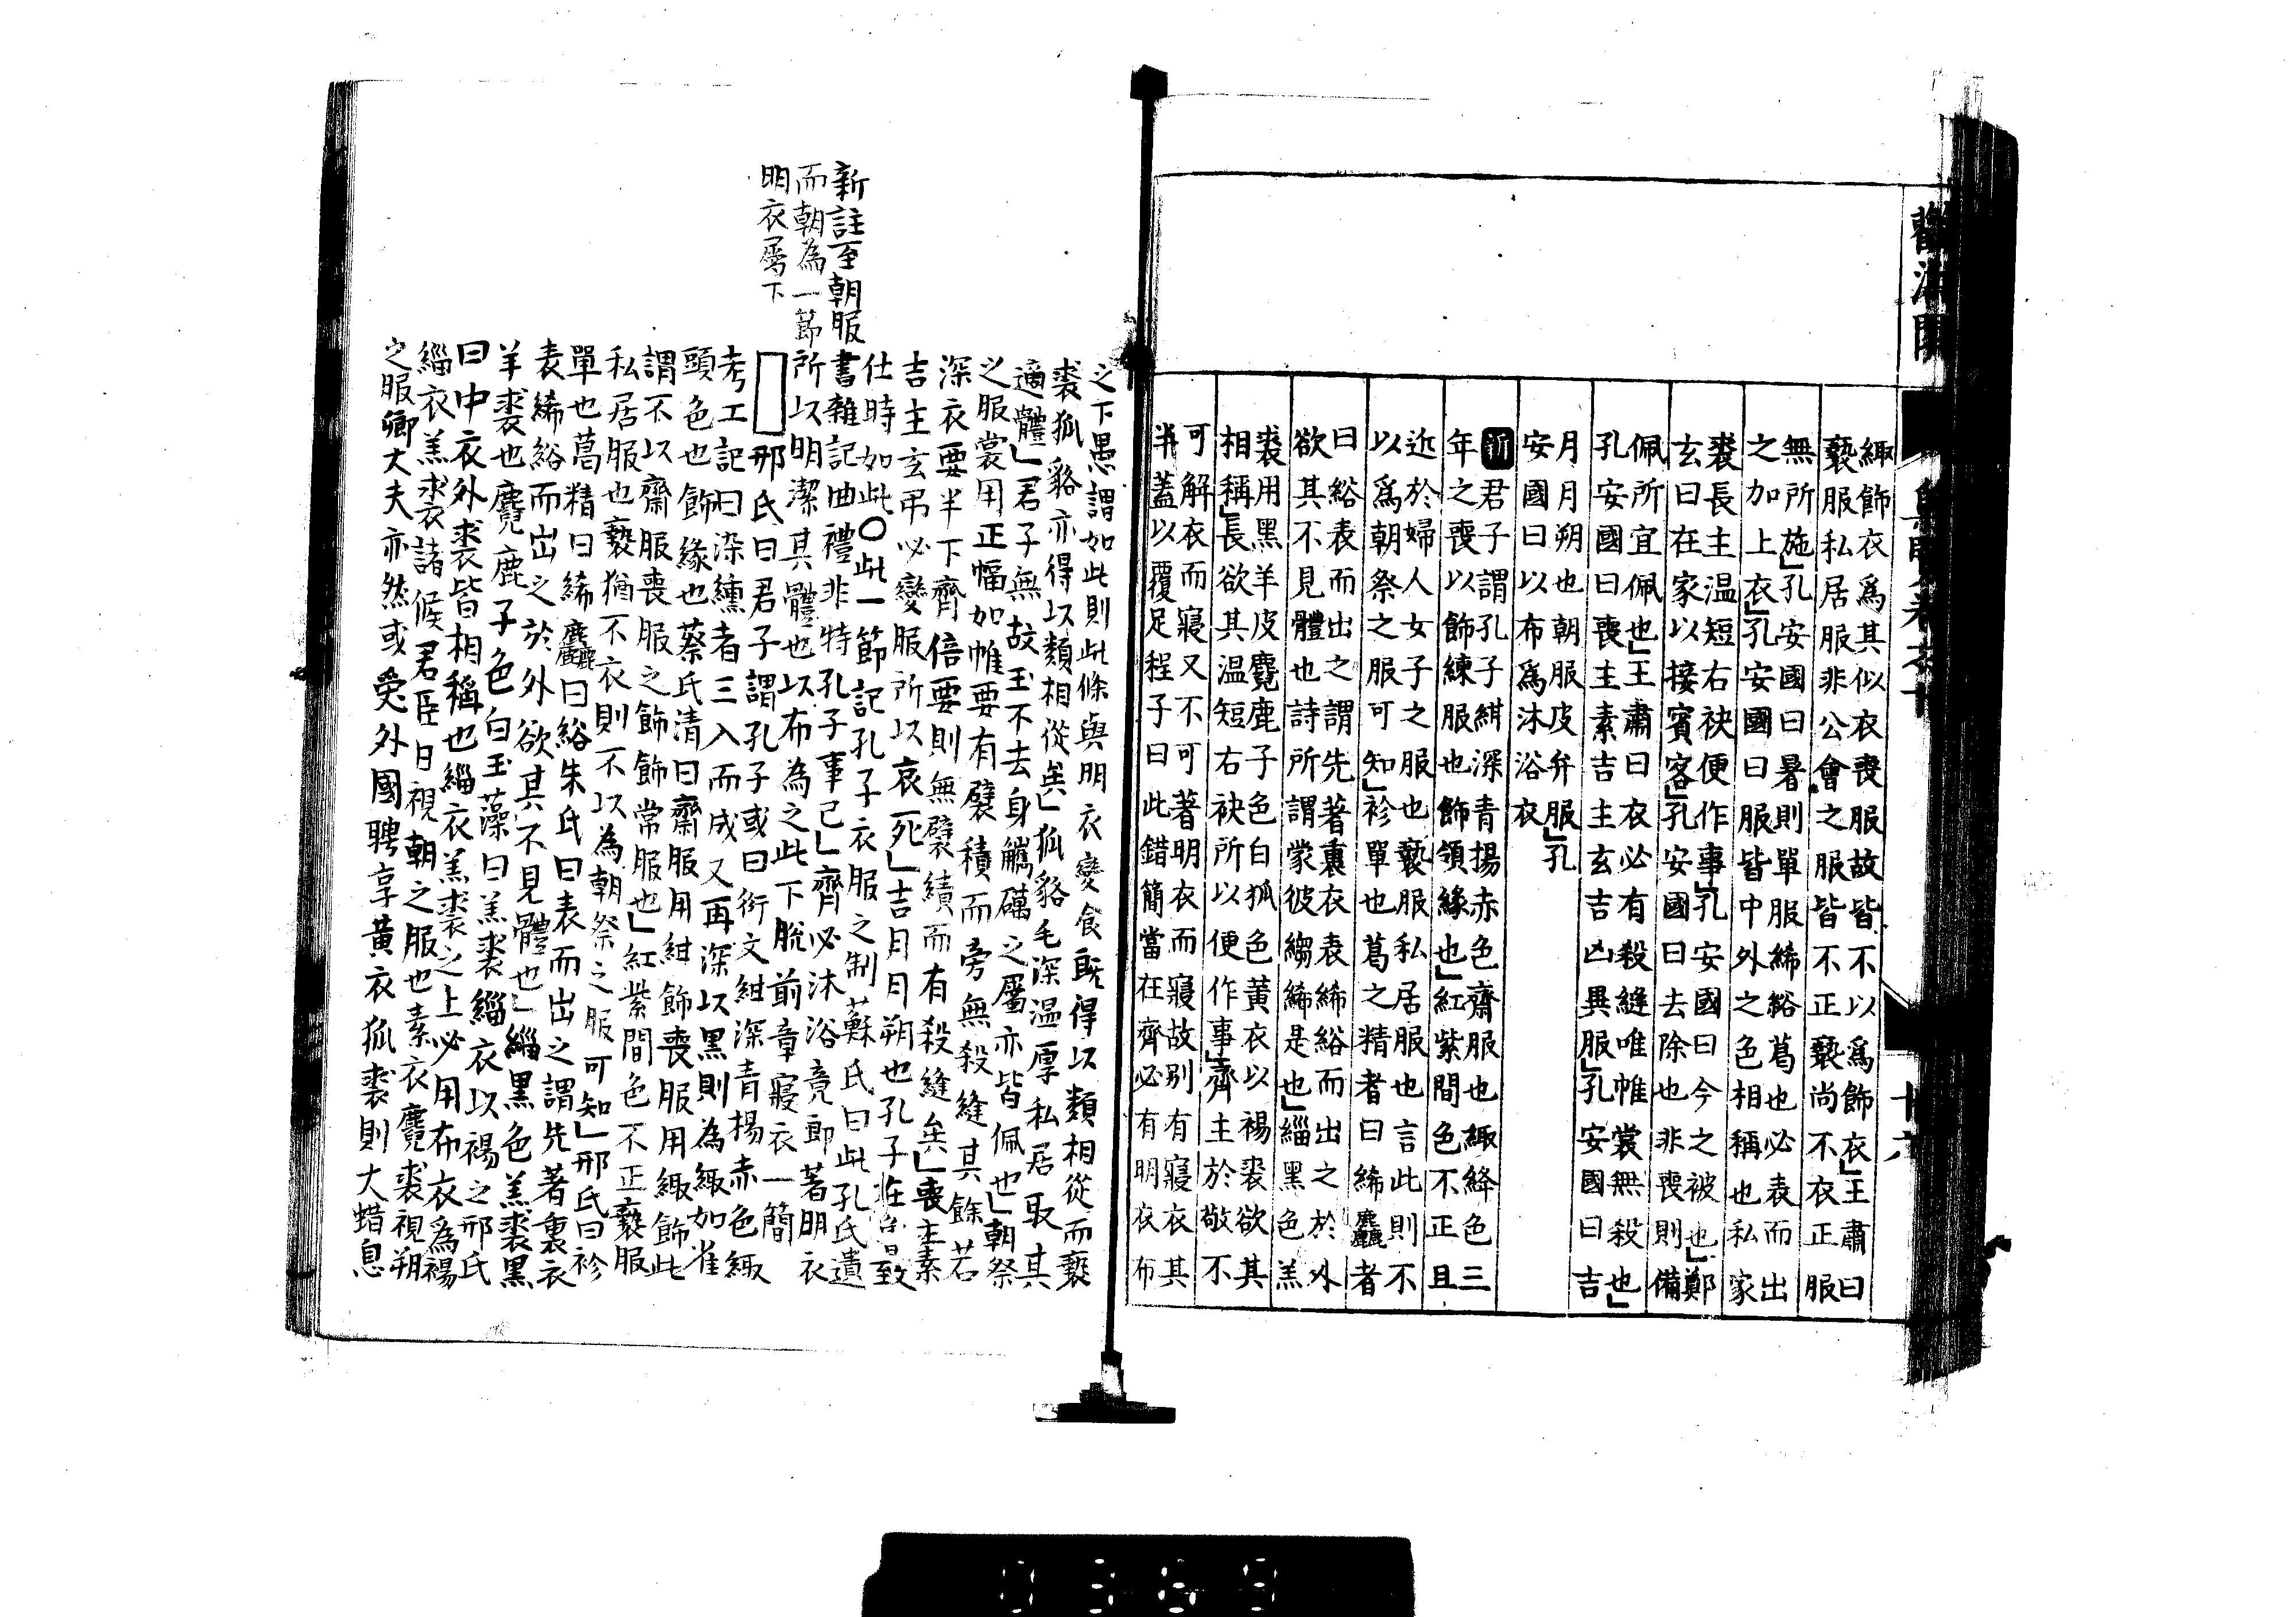 十六
緅飾衣爲其似衣喪服故皆不以爲飾衣」王肅曰
褻服私居服非公會之服皆不正褻尚不衣正服
無所施」孔安國曰暑則單服絺綌葛也必表而出
之加上衣」孔安國曰服皆中外之色相稱也私家
裘長主温短右袂便作事」孔安國曰今之被也」鄭
玄曰在家以接賓客」孔安國曰去除也非喪則備
佩所宜佩也」王肅曰衣必有殺縫唯帷裳無殺也」
孔安國曰喪主素吉主玄吉凶異服」孔安國曰吉
月月朔也朝服皮弁服」孔
安國曰以布爲沐浴衣
新君子謂孔子紺深青揚赤色齊服也緅絳色三
年之喪以飾練服也飾領緣也」紅紫間色不正且
近於婦人女子之服也褻服私居服也言此則不
以爲朝祭之服可知」袗單也葛之精者曰絺麤者
曰綌表而出之謂先著裏衣表絺綌而出之於外
欲其不見體也詩所謂蒙彼縐絺是也」緇黑色羔
裘用黑羊皮麑鹿子色白狐色黃衣以裼裘欲其
相稱」長欲其温短右袂所以便作事」齊主於敬不
可解衣而寢又不可著明衣而寢故別有寢衣其
半蓋以覆足程子曰此錯簡當在齊必有明衣布
之下愚謂如此則此條與明衣變食既得以類相從而褻
裘狐貉亦得以類相從矣」狐貉毛深温厚私居取其
適體」君子無故玉不去身觿礪之屬亦皆佩也」朝祭
之服裳用正幅如帷要有襞積而旁無殺縫其餘若
深衣要半下齊倍要則無襞績而有殺縫矣」喪主素
吉主玄弔必變服所以哀死」吉月月朔也孔子在魯致
仕時如此○此一節記孔子衣服之制蘇氏曰此孔氏遺
書雜記曲禮非特孔子事已」齊必沐浴竟即著明衣
所以明潔其體也以布為之此下脫前章寢衣一簡
邢氏曰君子謂孔子或曰衍文紺深青揚赤色緅
考工記曰染纁者三入而成又再深以黑則為緅如雀
頭色也飾緣也蔡氏清曰齋服用紺飾喪服用緅飾此
謂不以齋服喪服之飾飾常服也」紅紫間色不正褻服
私居服也褻猶不衣則不以為朝祭之服可知」邢氏曰袗
單也葛精曰絺麤曰綌朱氏曰表而出之謂先著裏衣
表絺綌而出之於外欲其不見體也」緇黑色羔裘黑
羊裘也麑鹿子色白玉藻曰羔裘緇衣以裼之邢氏
曰中衣外裘皆相稱也緇衣羔裘之上必用布衣為裼
緇衣羔裘諸候君臣日視朝之服也素衣麑裘視朔
之服卿大夫亦然或受外國聘享黃衣狐裘則大蜡息
新註至朝服
而朝為一節
明衣屬下